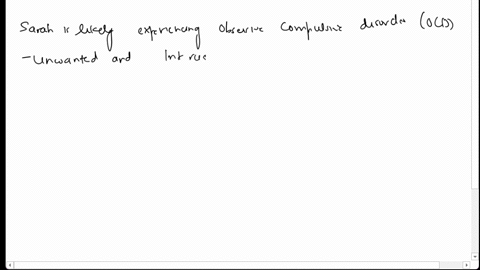 Sarah is likely experiencing Obsessive Compulsive disorder (OCD)
- Unwanted and Intrus